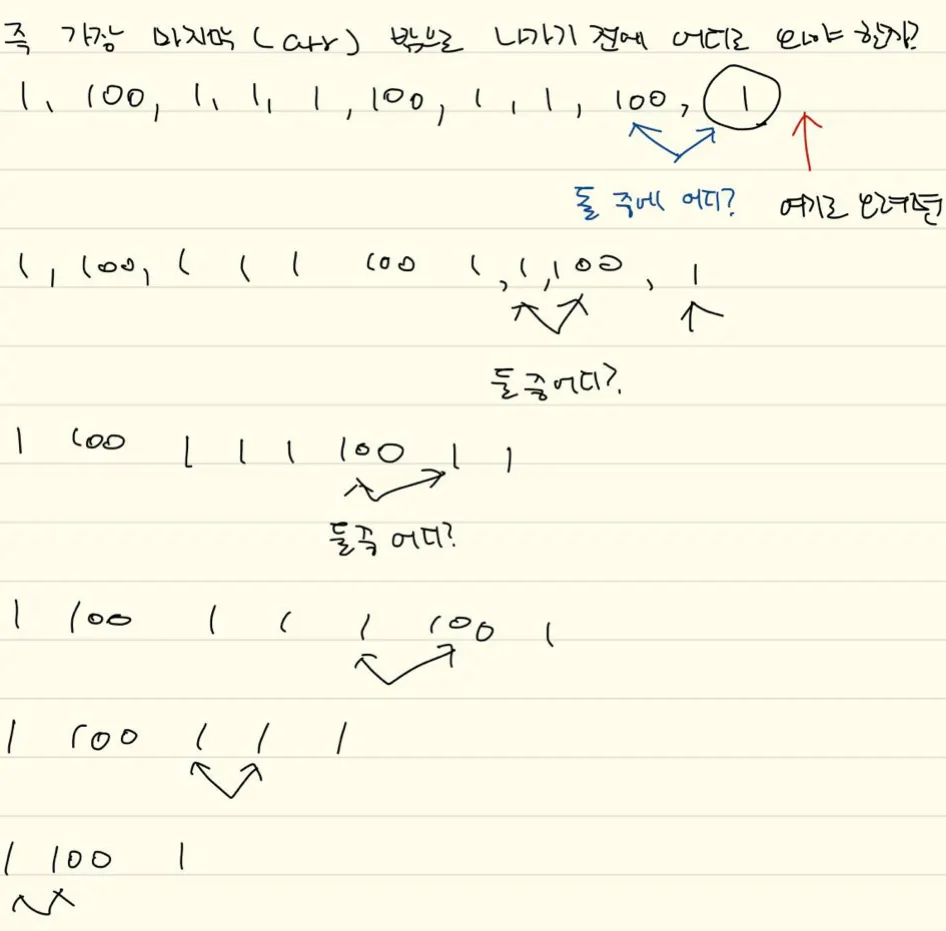 즉 가장 마지막 (arr) 밖으로 나가기 전에 어디로 와야 한지?
1, 100, 1, 1, 1, 100, 1, 1, 100, 1
둘 중에 어디? 여기로 오려면
1, 100, 1 1 1 100 1, 1, 100, 1
둘 중 어디?
1 100 1 1 1 100 1 1
둘 중 어디?
1 100 1 1 1 100 1
1 100 1 1 1
1 100 1